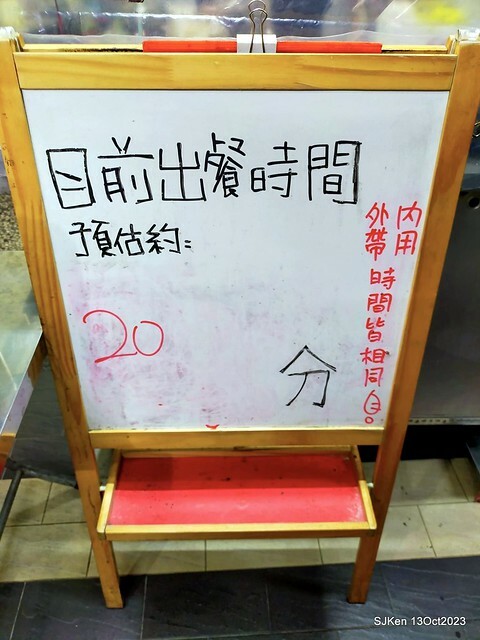 目前出餐時間
預估約:
20 分
內用
外帶 時間皆相同
SJKen 13Oct2023